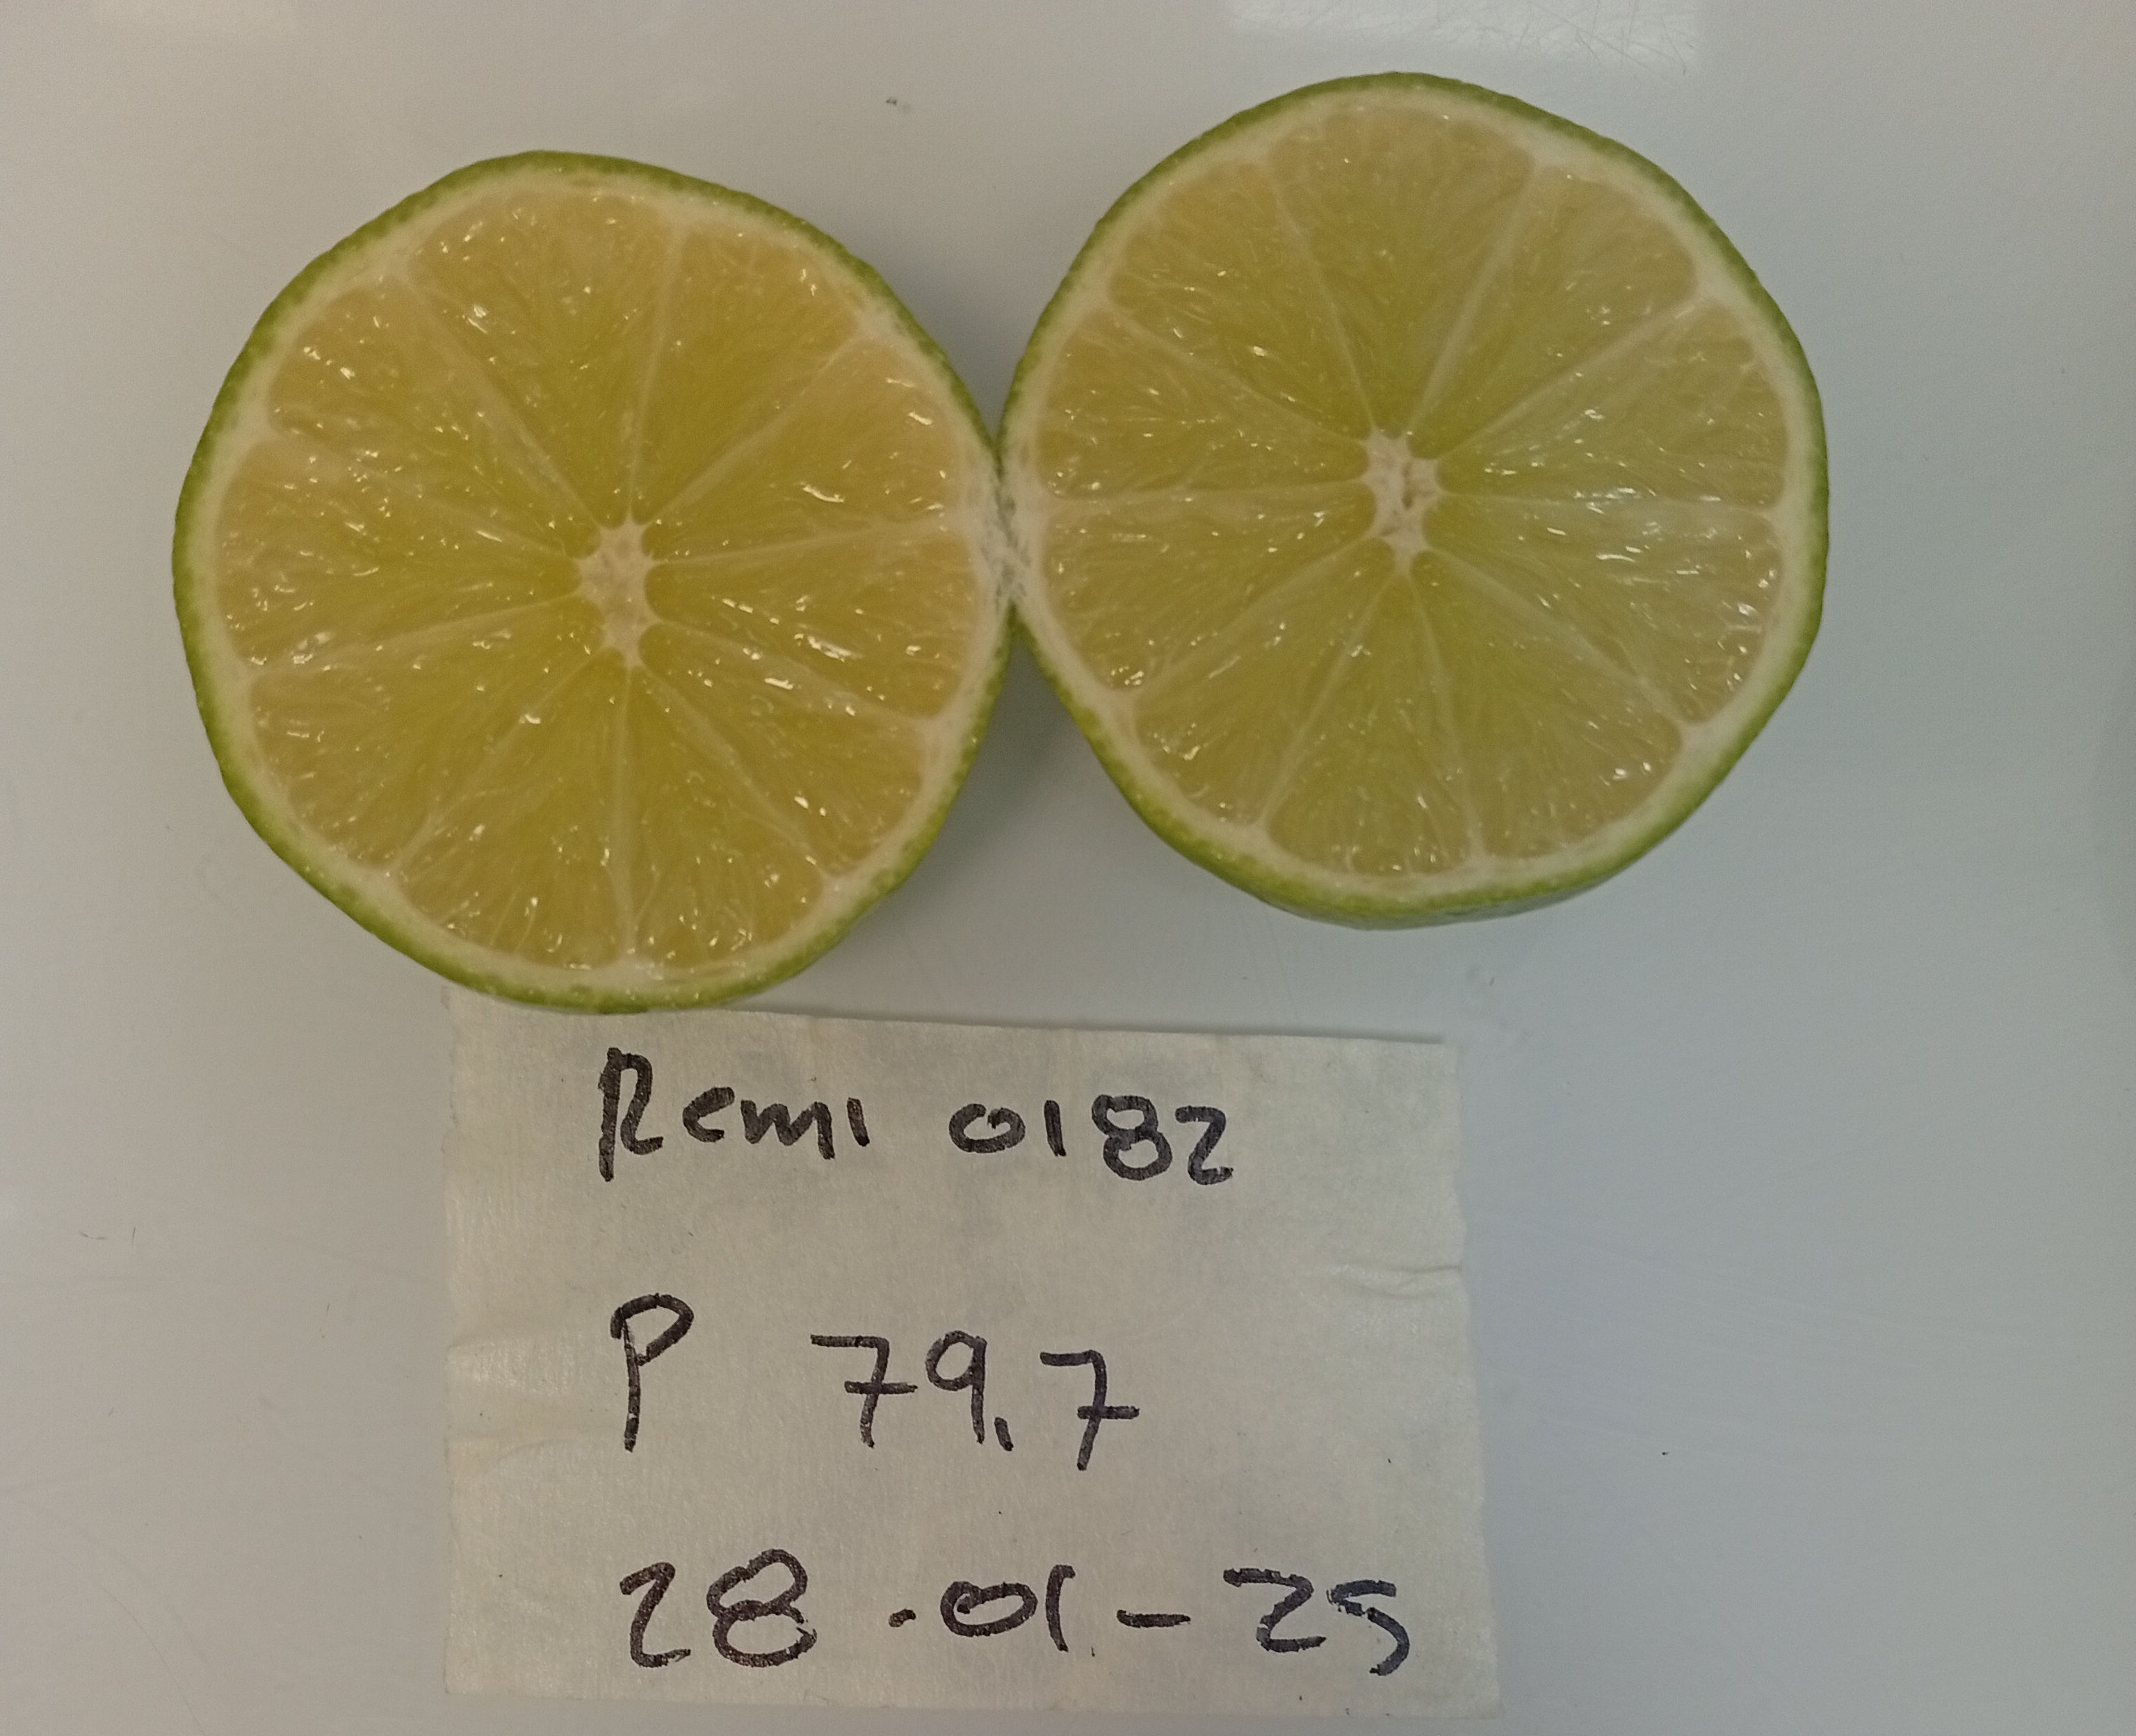 Remi 0182
P 79.7
28.01-25